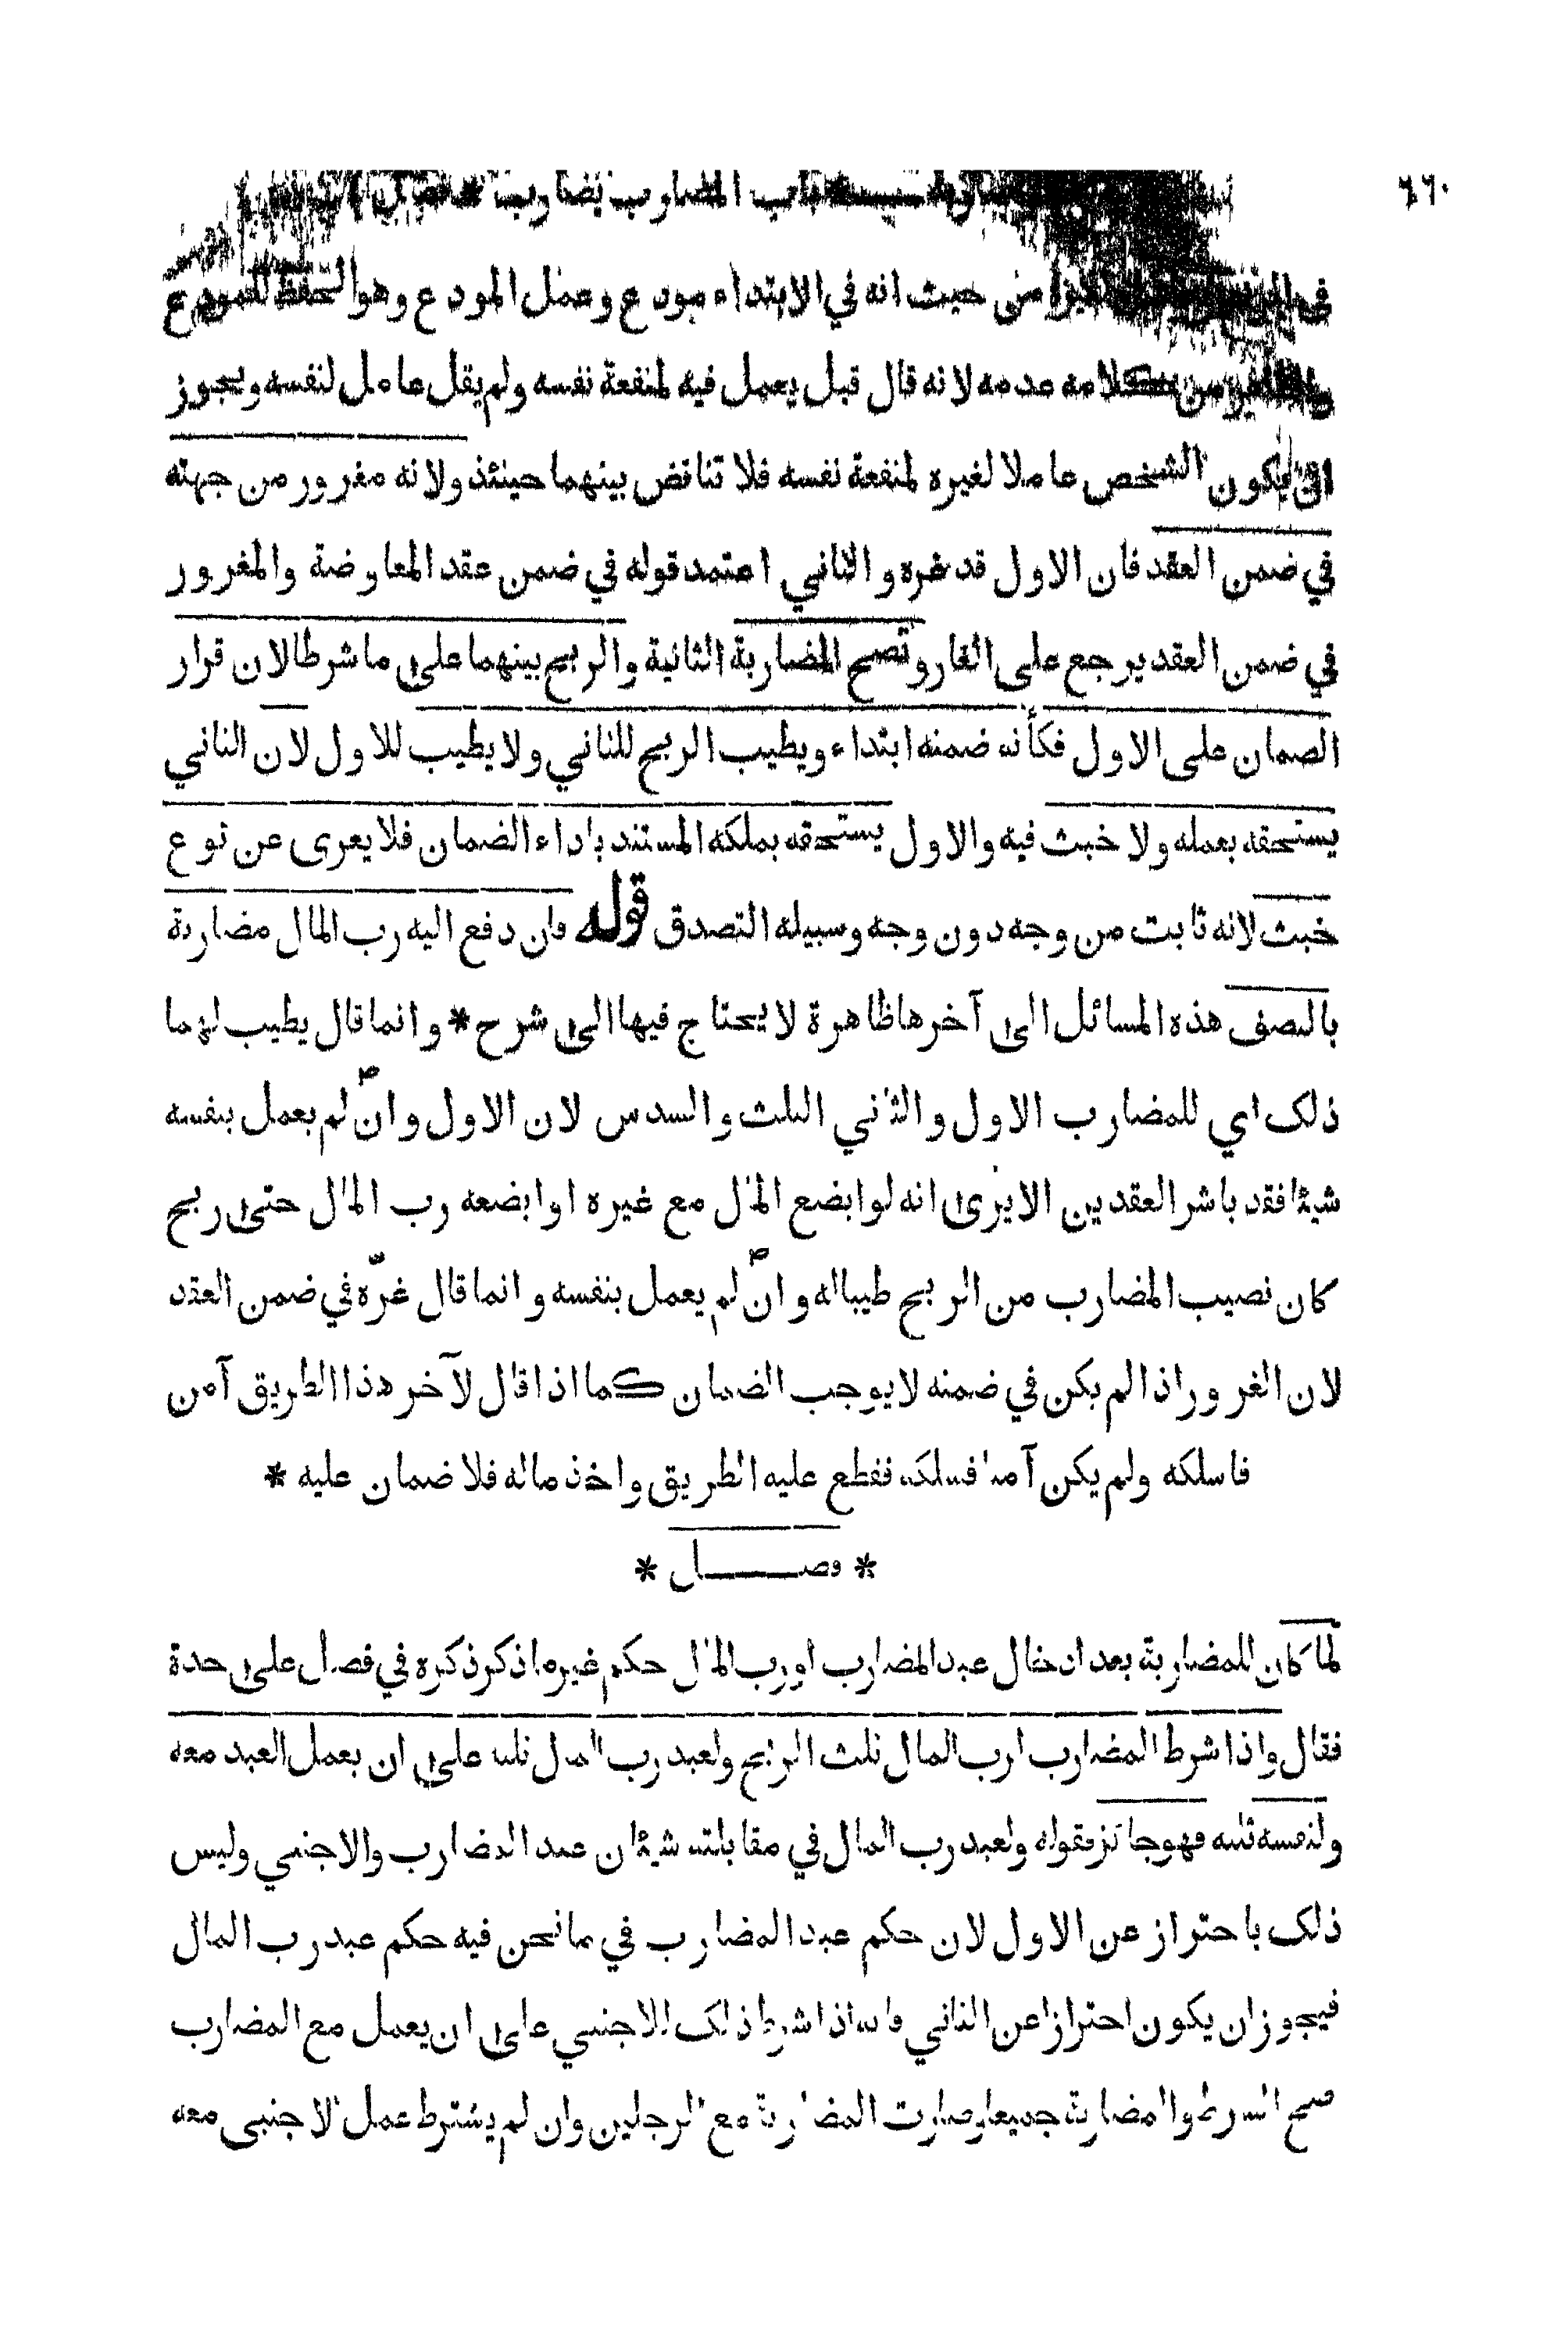 ٦٦٠
باب المضارب يضارب * فصل
في حيث انه في الابتداء مودع وعمل المودع وهو الحفظ للمودع
من كلامه عدمه لانه قال قبل يعمل فيه لمنفعة نفسه ولم يقل عامل لنفسه ويجوز
ان يكون الشخص عاملا لغيره لمنفعة نفسه فلا تناقض بينهما حينئذ ولانه مغرور من جهته
في ضمن العقد فان الاول قد غره والثاني اعتمد قوله في ضمن عقد المعاوضة والمغرور
في ضمن العقد يرجع على الغار وتصح المضاربة الثانية والربح بينهما على ما شرطا لان قرار
الضمان على الاول فكأنه ضمنه ابتداء ويطيب الربح للثاني ولا يطيب للاول لان الثاني
يستحقه بعمله ولا خبث فيه والاول يستحقه بملكه المستند باداء الضمان فلا يعرى عن نوع
خبث لانه ثابت من وجه دون وجه وسبيله التصدق قوله فان دفع اليه رب المال مضاربة
بالنصف هذه المسائل الى آخرها ظاهرة لا يحتاج فيها الى شرح * وانما قال يطيب لهما
ذلك اي للمضارب الاول والثاني الثلث والسدس لان الاول وان لم يعمل بنفسه
شيئا فقد باشر العقدين الا يرى انه لو ابضع المال مع غيره او ابضعه رب المال حتى ربح
كان نصيب المضارب من الربح طيبا له وان لم يعمل بنفسه وانما قال غرّه في ضمن العقد
لان الغرور اذا لم يكن في ضمنه لا يوجب الضمان كما اذا قال لآخر هذا الطريق آمن
فاسلكه ولم يكن آمنا فسلكه فقطع عليه الطريق واخذ ماله فلا ضمان عليه *
* فصـــل *
لما كان للمضاربة بعد ادخال عبد المضارب او رب المال حكم غير ما ذكر ذكره في فصل على حدة
فقال واذا شرط المضارب لرب المال ثلث الربح ولعبد رب المال ثلثه على ان يعمل العبد معه
ولنفسه ثلثه فهو جائز فقوله ولعبد رب المال في مقابلته شيئان عبد المضارب والاجنبي وليس
ذلك باحتراز عن الاول لان حكم عبد المضارب في ما نحن فيه حكم عبد رب المال
فيجوز ان يكون احترازا عن الثاني فانه اذا شرط ذلك للاجنبي على ان يعمل مع المضارب
صح الشرط والمضاربة جميعا وصارت المضاربة مع الرجلين وان لم يشترط عمل الاجنبي معه